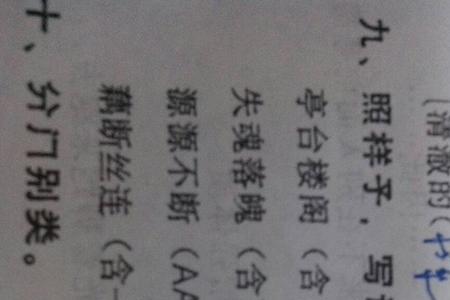 [清澈的(
九、照样子，写
亭台楼阁（含
失魂落魄（含
源源不断（AA
藕断丝连（含
十、分门别类。